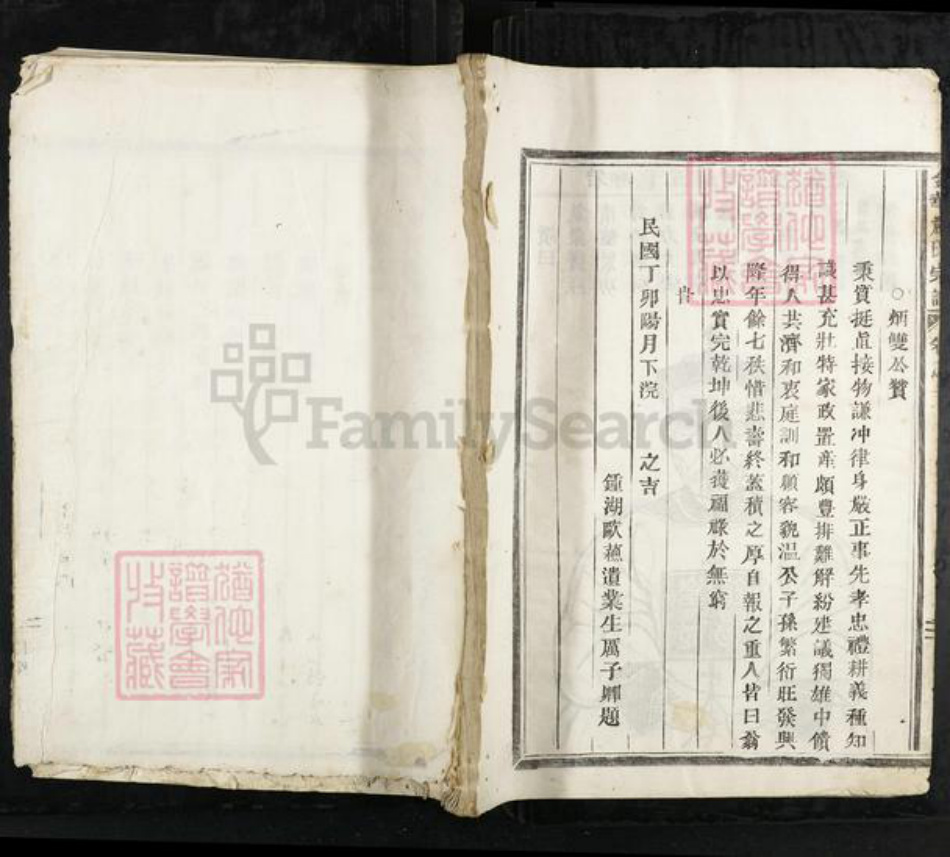 ○炳雙公贊
秉質挺直接物謙冲律身嚴正事先孝忠禮耕義種知
識甚充壯特家政置產頗豐排難解紛建議獨雄中饋
得人共濟和衷庭訓和順容貌温公子孫繁衍旺發興
隆年餘七秩惜悲壽終蓋積之厚自報之重人皆曰翁
以忠實完乾坤後人必獲福祿於無窮
旹
民國丁卯陽月下浣 之吉
鍾湖歐蓀遺業生厲子 題
氏宗譜
FamilySearch
譜學會
收藏
譜學會
收藏